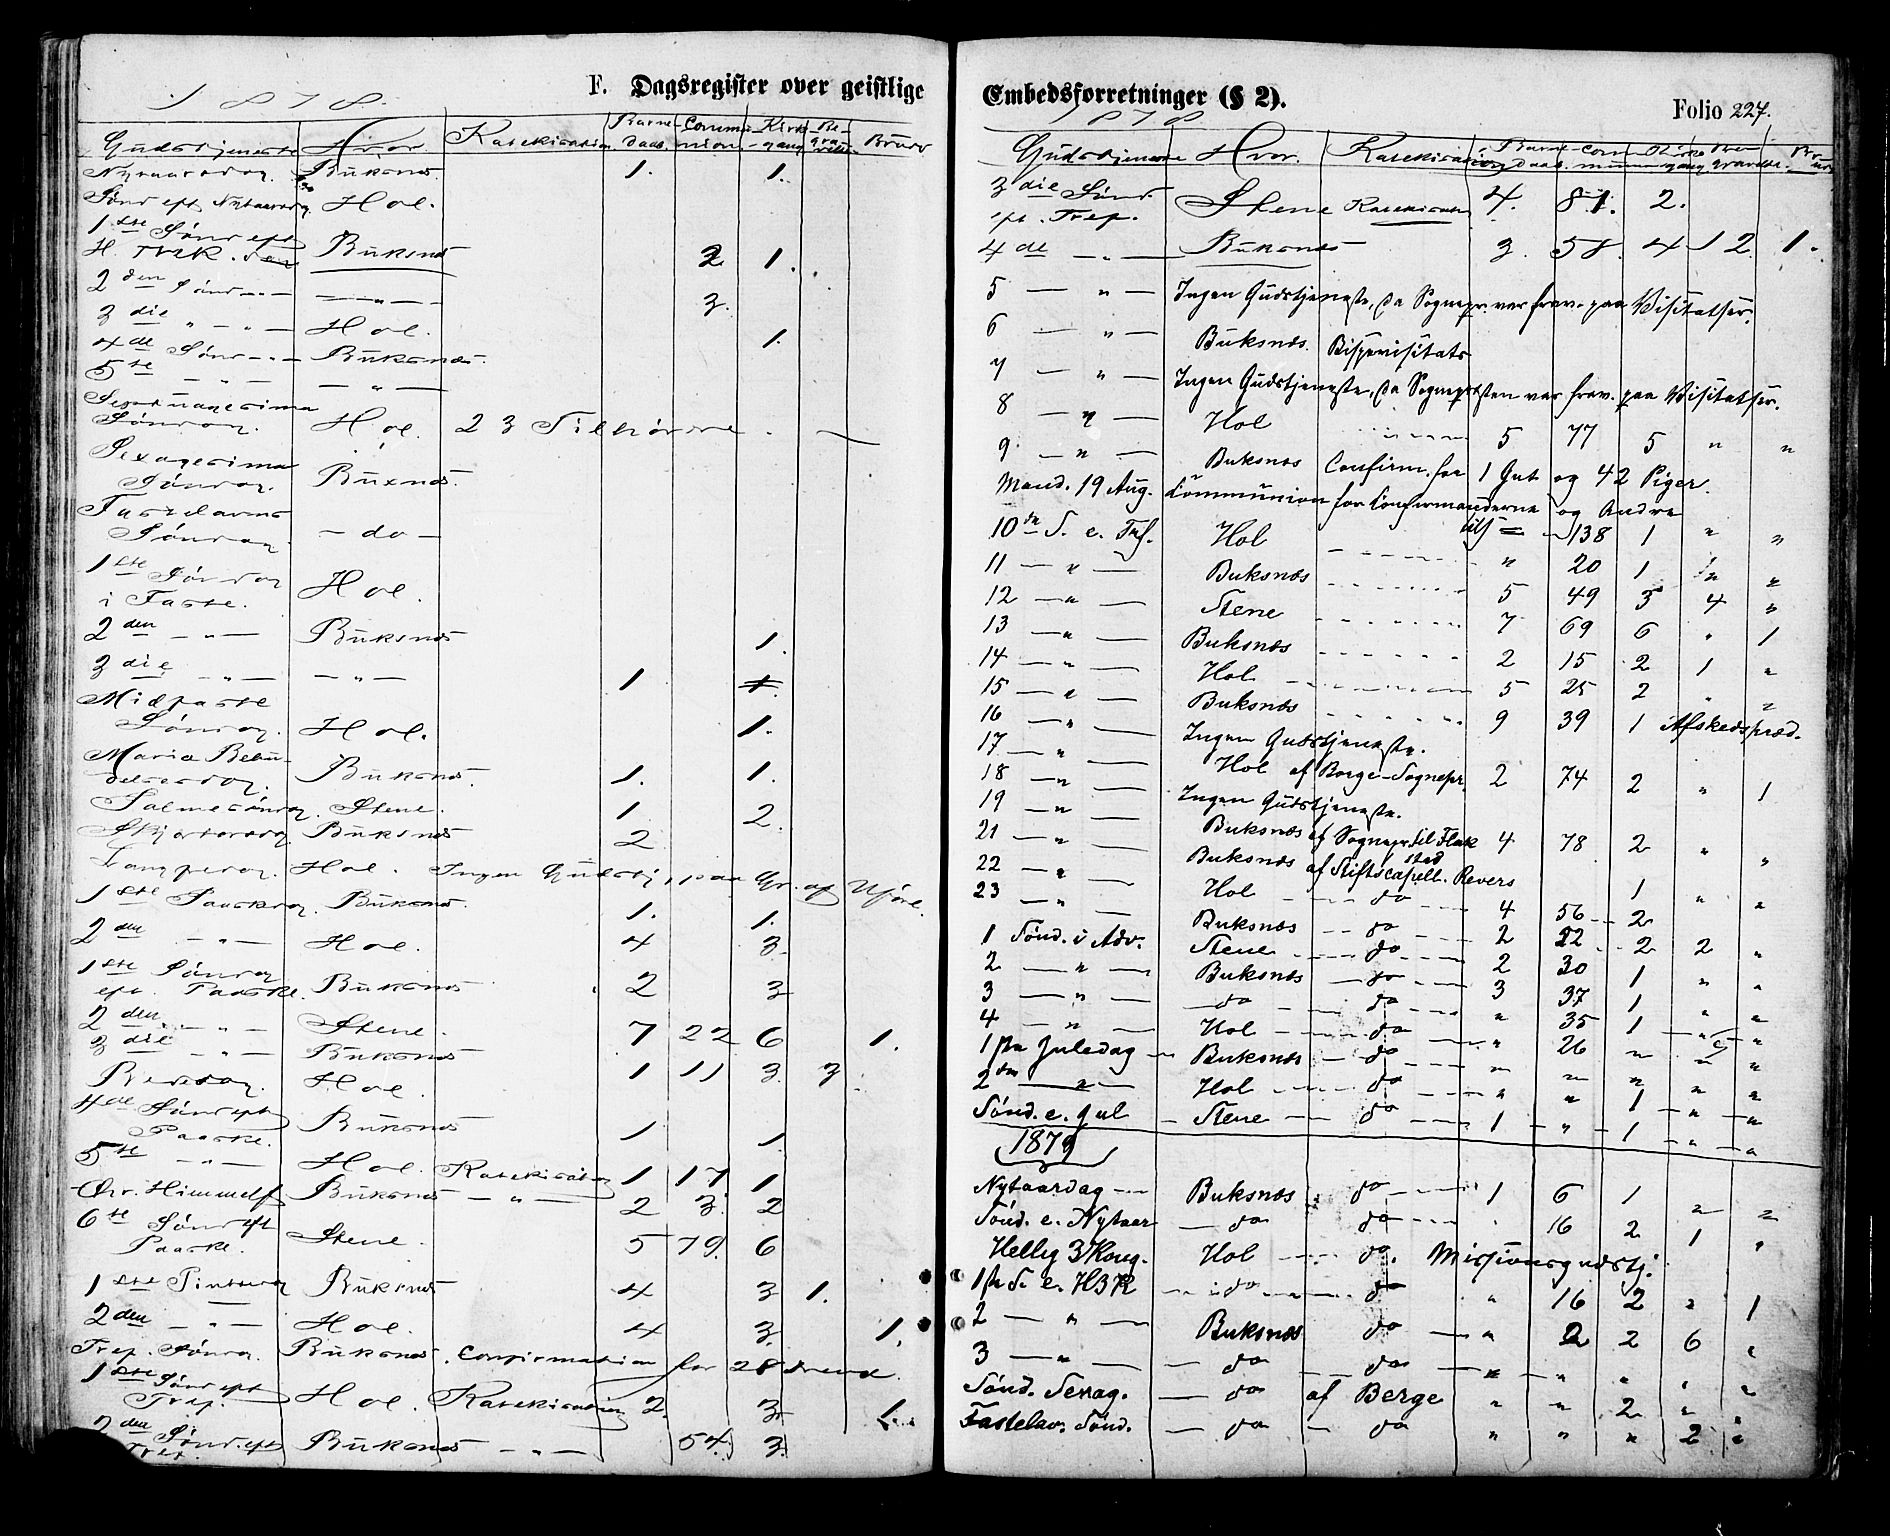 F. Dagsregister over geistlige
1878.
Gudstjeneste Hvor Katekisation Barne-daab Commu-nion Kirke-gang Be-gra-velse Brude
Nytaarsdag. Buksnes. 1. 1.
Sønd eft Nytaarsdag Hol.
1ste Sønd eft
H. Tre K. Buksnes 2 1.
2den Sønd - - — " — 3.
3die " - " — Hol. 1.
4de Sønd - - Buksnes.
5te — " — — " —
Septuagesima
Søndag. Hol. 23 Tilhørere.
Sexagesima
Søndag. Buxnes.
Fastelavns
Søndag — do —
1ste Søndag
i Faste. Hol.
2den — " — Buksnes 1.
3die — " — — " — 1 1.
Midfaste
Søndag. Hol. 1.
Maria Bebu-
delsesdag. Buksnes 1. 1.
Palmesøndag. Stene. 1 2.
Skjærtorsdag Buksnes 2
Langfredag. Hol. Ingen Gudstj. paa Gr. af Uføre.
1ste Paaskedag. Buksnes. 1. 1.
2den — " — Hol. 4 3.
1ste Søndag
eft. Paaske. Buksnes 2 3
2den — " — Stene. 7 22 6 1.
3die — " — Buksnes 1 11 3. 3
Bededag. Hol.
4de Sønd eft
Paaske. Buksnes 1 1.
5te — " — Hol. Katekisation 1 17 1
Chr. Himmelf Buksnes — " — 2 3. 2
6te Sønd eft
Paaske. Stene. 5 79. 6
1ste Pintsedag Buksnes 4 3 1.
2den — " — Hol. 4 3. 1.
Tref. Søndag. Buksnes. Confirmation for 28 Drenge.
1ste Sønd eft
Tref. Hol. Katekisation 2. 3. 1.
2den Sønd eft
Tref. Buksnes — " — 54. 3.
Embedsforretninger (§ 2).
1878
Folio 227.
Gudstjeneste Hvor. Katekisation Barne-daab. Com-munion Kirke-gang Be-gravelse. Brude
3die Sønd
eft. Tref. Stene Katekisation 4. 81. 2.
4de — " — Buksnes 3. 58. 4 12. 1.
5 — " — Ingen Gudstjeneste, da Sognepr. var frav. paa Visitatser.
6 — " — Buksnes. Bispevisitats
7 — " — Ingen Gudstjeneste, da Sognepresten var frav. paa Visitatser.
8 — " — Hol 5 77 5 " "
9. — " — Buksnes Confirm. for 1 Gut og 42 Piger.
Mand. 19 Aug. Communion for Confirmanderne og Andre
10de S. e. Tref. Hol 138 1 " "
11 — " — Buksnes " 20 1 " "
12 — " — Stene 5 49 3 4 "
13 — " — Buksnes 7 69 6 " 1
14 — " — Hol 2 15 2 1 "
15 — " — Buksnes 5 25 2 " "
16 — " — 9 39 1 Afskedspræd.
17 — " — Ingen Gudstjeneste.
18 — " — Hol af Borge-Sognepr. 2 74 2 " 1
19 — " — Ingen Gudstjeneste.
21 — " — Buksnes af Sognepr. til Flakstad 4 78 2 " "
22 — " — Buksnes af Stiftscapell. Revers 1 " "
23 — " — Hol do 4 56 2
1 Sønd. i Adv. Buksnes do 2 22 2 2 "
2 — " — Stene do 2 30 1 " "
3 — " — Buksnes do 3 37 1 " "
4 — " — do do " 35 1 " "
1ste Juledag Hol do " 26 " "
2den — " — Buksnes do " " " " "
Sønd. e. Jul Hol do " " 1 " "
Stene do 1 " 1 " "
1879
Nytaarsdag Buksnes do 1 6 1 " "
Sønd. e. Nytaar do do " 16 2 1 "
Hellig 3 Kong. Hol do. Missionsgudstj.
1ste S. e. H3K do do " 16 2 " 1
2 — " — Buksnes do " 2 2 6 "
3 — " — do do " " " " "
Sønd. Sexag. do af Berge " " 2 " "
Fastelav. Sønd. do do " " " 2 "